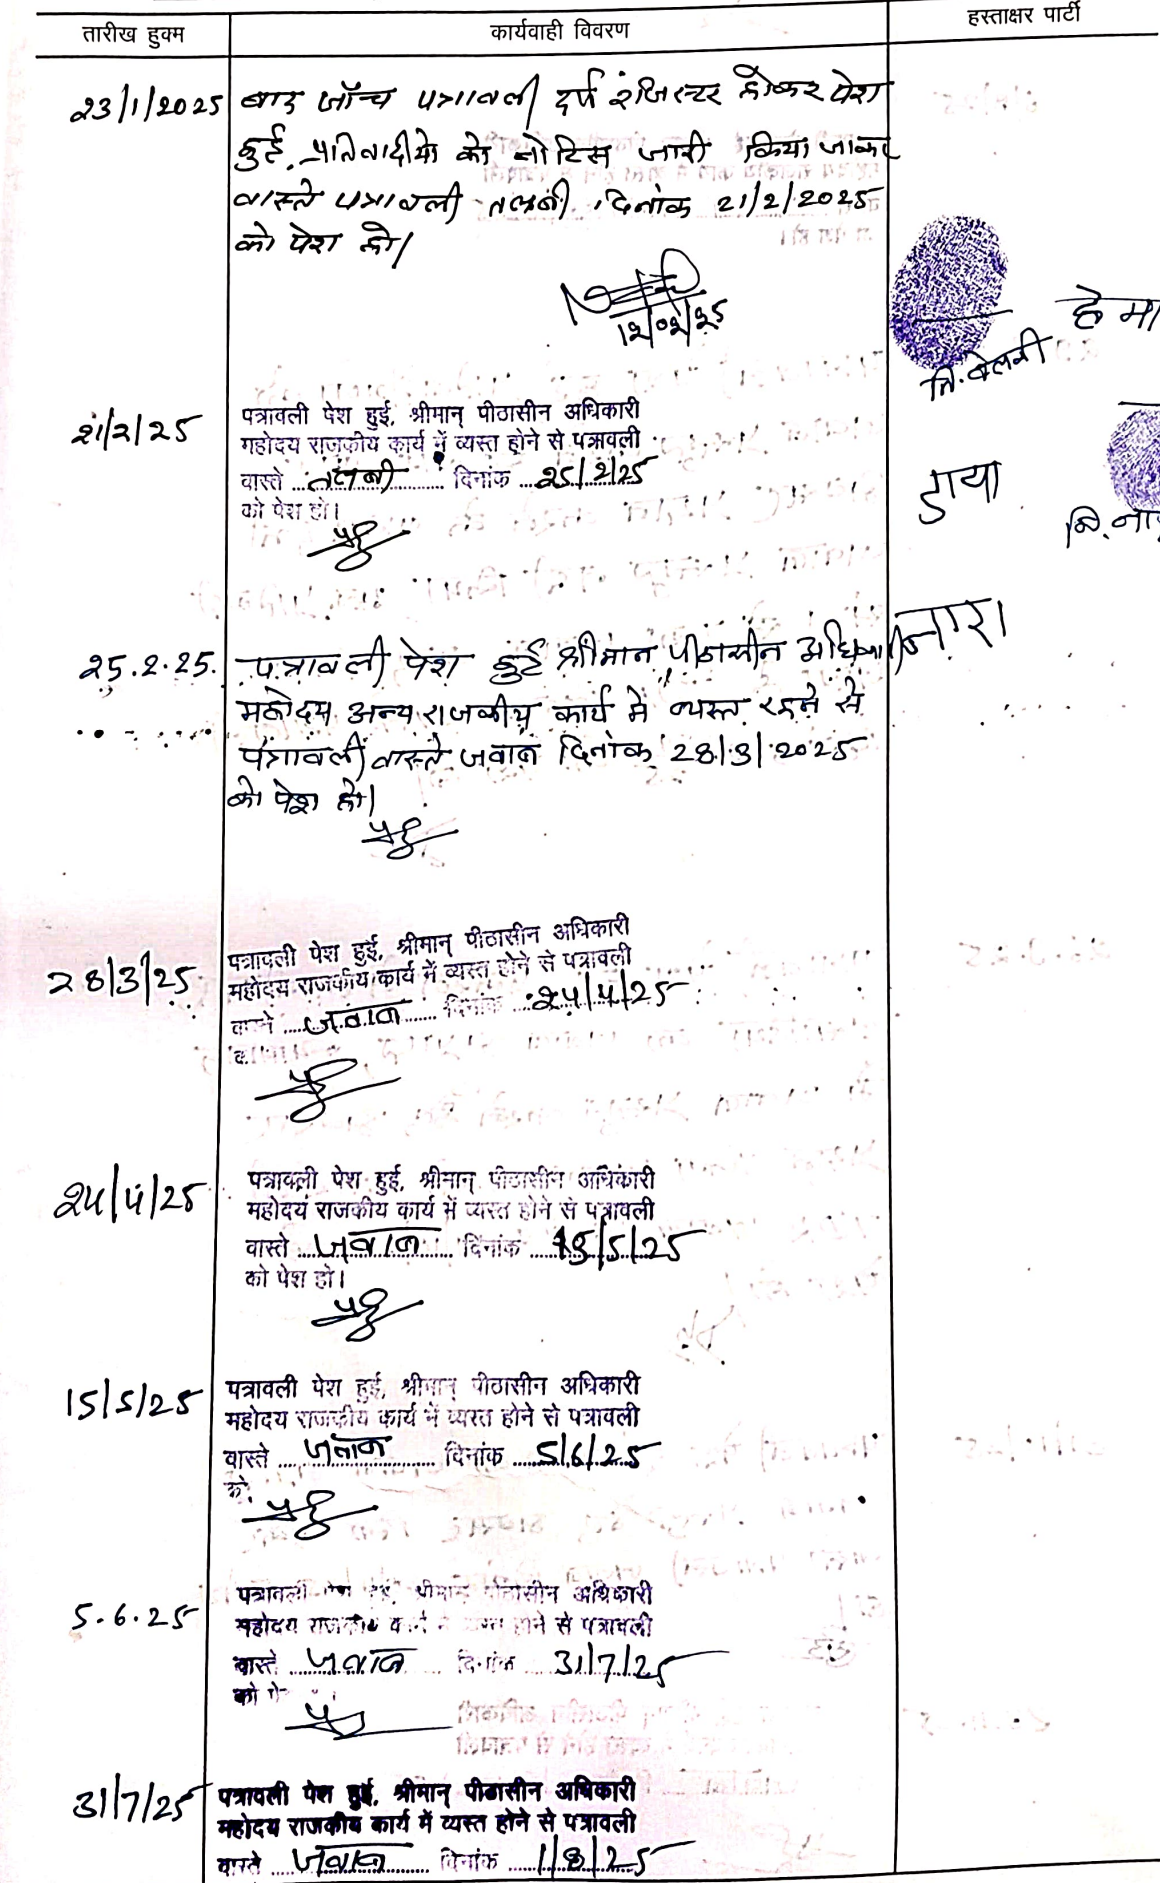 तारीख हुक्म
कार्यवाही विवरण
हस्ताक्षर पार्टी
23/1/2025
बाद जॉच पत्रावली दर्ज रजिस्टर होकर पेश
हुई. प्रतिवादीयो को नोटिस जारी किया जाकर
वास्ते पत्रावली तलबी दिनांक 21/2/2025
को पेश हो।
हेमा
नि. बेलनी
21/2/25
पत्रावली पेश हुई, श्रीमान् पीठासीन अधिकारी
महोदय राजकीय कार्य में व्यस्त होने से पत्रावली
वास्ते तलबी दिनांक 25/2/25
को पेश हो।
डाया
नि.
25.2.25.
पत्रावली पेश हुई श्रीमान पीठासीन अधिकारी
महोदय अन्य राजकीय कार्य में व्यस्त रहने से
पत्रावली वास्ते जवाब दिनांक 28/3/2025
को पेश हो।
28/3/25
पत्रावली पेश हुई, श्रीमान् पीठासीन अधिकारी
महोदय राजकीय कार्य में व्यस्त होने से पत्रावली
वास्ते जवाब दिनांक 24/4/25
24/4/25
पत्रावली पेश हुई, श्रीमान् पीठासीन अधिकारी
महोदय राजकीय कार्य में व्यस्त होने से पत्रावली
वास्ते जवाब दिनांक 15/5/25
को पेश हो।
15/5/25
पत्रावली पेश हुई, श्रीमान् पीठासीन अधिकारी
महोदय राजकीय कार्य में व्यस्त होने से पत्रावली
वास्ते जवाब दिनांक 5/6/25
को
5.6.25
पत्रावली पेश हुई, श्रीमान् पीठासीन अधिकारी
महोदय राजकीय कार्य में व्यस्त होने से पत्रावली
वास्ते जवाब दिनांक 31/7/25
को पे
31/7/25
पत्रावली पेश हुई, श्रीमान् पीठासीन अधिकारी
महोदय राजकीय कार्य में व्यस्त होने से पत्रावली
वास्ते जवाब दिनांक 1/8/25